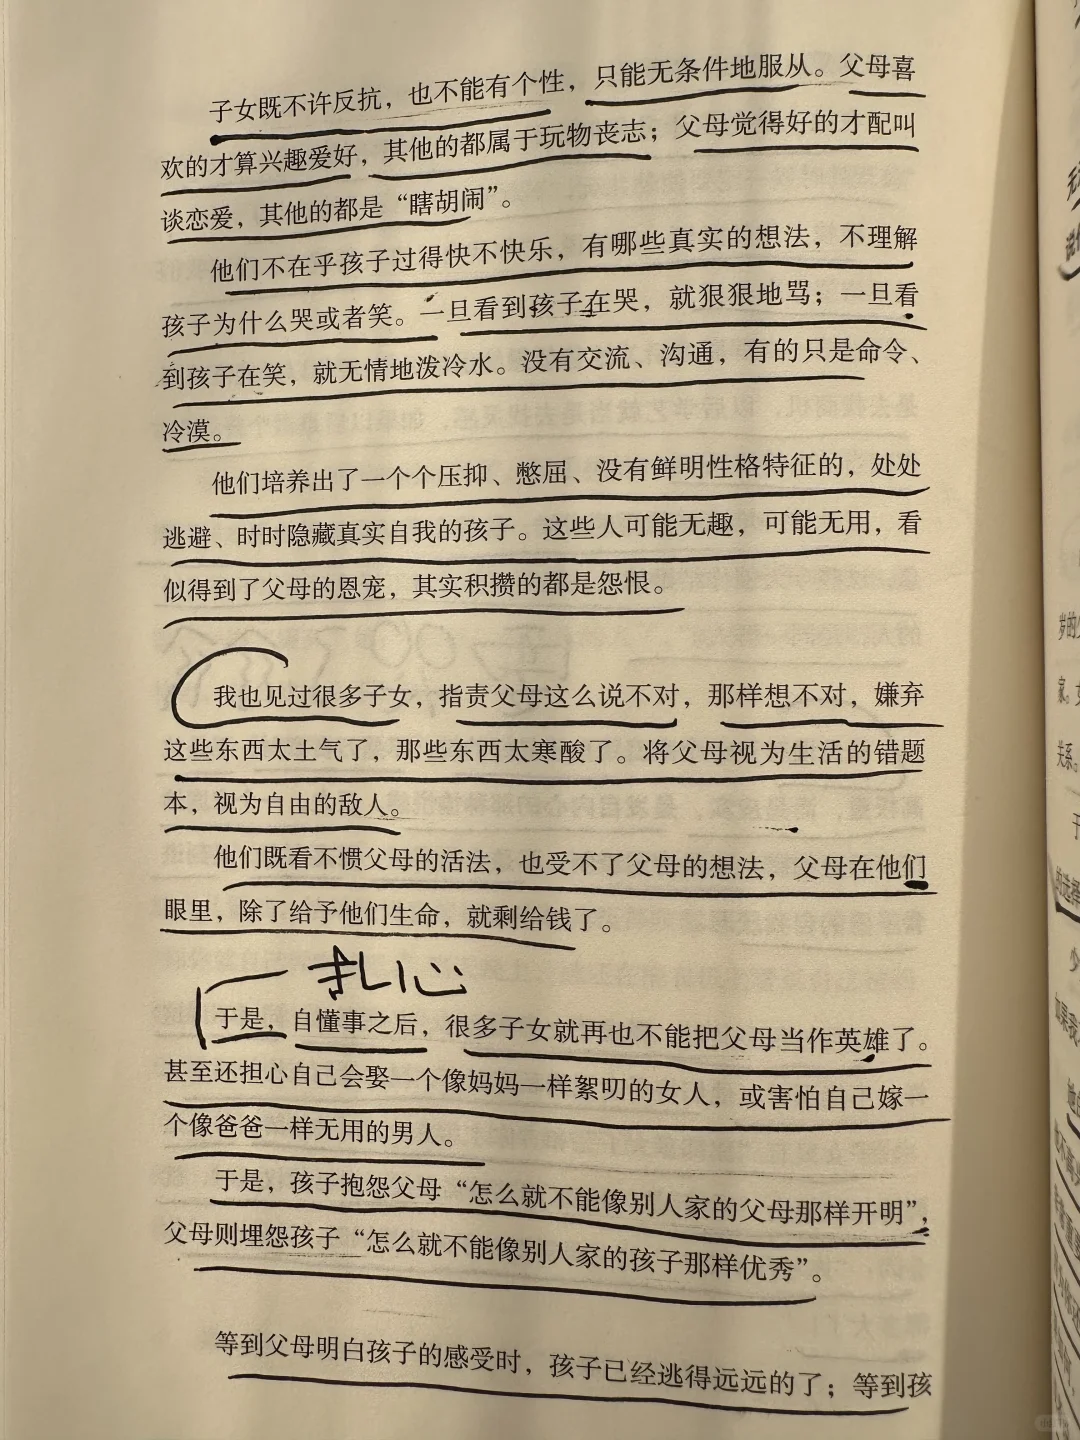 子女既不许反抗，也不能有个性，只能无条件地服从。父母喜
欢的才算兴趣爱好，其他的都属于玩物丧志；父母觉得好的才配叫
谈恋爱，其他的都是“瞎胡闹”。
他们不在乎孩子过得快不快乐，有哪些真实的想法，不理解
孩子为什么哭或者笑。一旦看到孩子在哭，就狠狠地骂；一旦看
到孩子在笑，就无情地泼冷水。没有交流、沟通，有的只是命令、
冷漠。
他们培养出了一个个压抑、憋屈、没有鲜明性格特征的，处处
逃避、时时隐藏真实自我的孩子。这些人可能无趣，可能无用，看
似得到了父母的恩宠，其实积攒的都是怨恨。
我也见过很多子女，指责父母这么说不对，那样想不对，嫌弃
这些东西太土气了，那些东西太寒酸了。将父母视为生活的错题
本，视为自由的敌人。
他们既看不惯父母的活法，也受不了父母的想法，父母在他们
眼里，除了给予他们生命，就剩给钱了。
扎心
于是，自懂事之后，很多子女就再也不能把父母当作英雄了。
甚至还担心自己会娶一个像妈妈一样絮叨的女人，或害怕自己嫁一
个像爸爸一样无用的男人。
于是，孩子抱怨父母“怎么就不能像别人家的父母那样开明”，
父母则埋怨孩子“怎么就不能像别人家的孩子那样优秀”。
等到父母明白孩子的感受时，孩子已经逃得远远的了；等到孩
岁的
家。
关系。
的选择
如果我